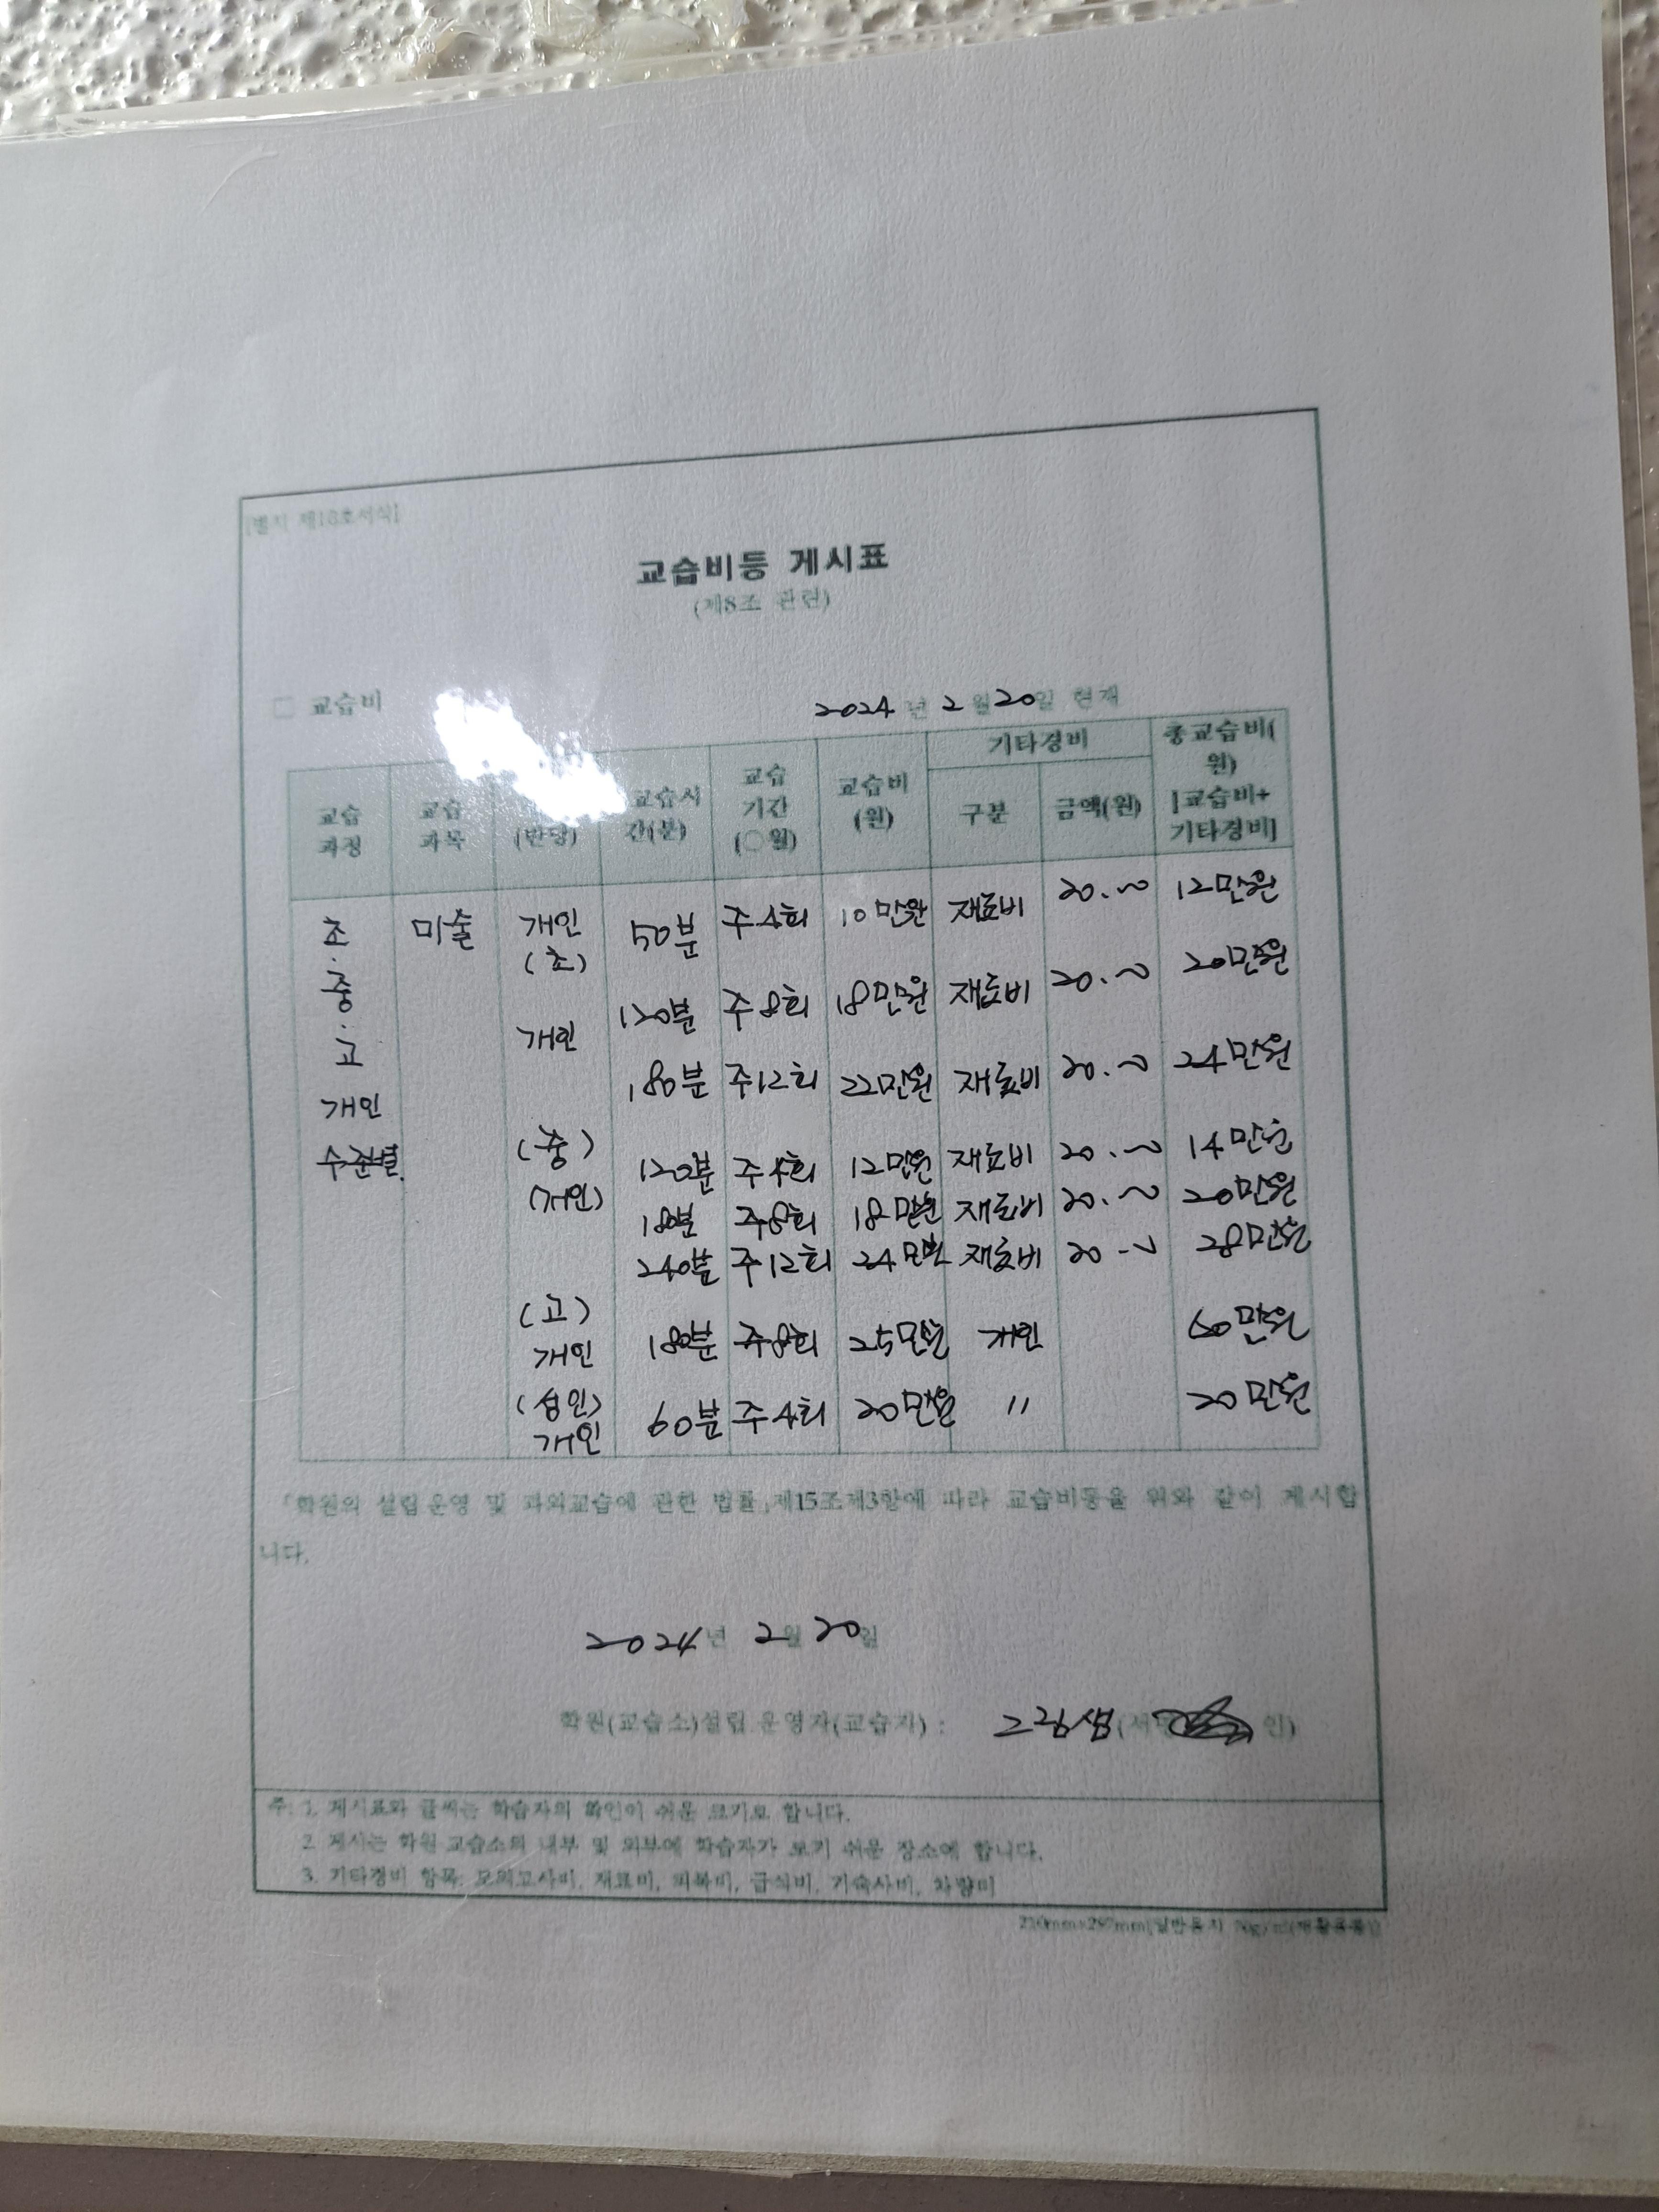 [별지 제18호서식]
교습비등 게시표
(제8조 관련)
□ 교습비
2024년 2월 20일 현재
교습과정 교습과목 (반당) 교습시간(분) 교습기간(○월) 교습비(원) 기타경비 구분 금액(원) 총교습비(원) [교습비+기타경비]
초·중·고 개인 수준별. 미술
개인 (초) 50분 주4회 10만원 재료비 20.~ 12만원
개인 120분 주8회 18만원 재료비 20.~ 20만원
180분 주12회 22만원 재료비 20.~ 24만원
(중) 120분 주4회 12만원 재료비 20.~ 14만원
(개인) 180분 주8회 18만원 재료비 20.~ 20만원
240분 주12회 24만원 재료비 20.~ 28만원
(고) 개인 180분 주8회 25만원 개인 60만원
(성인) 개인 60분 주4회 20만원 〃 20만원
「학원의 설립운영 및 과외교습에 관한 법률」제15조제3항에 따라 교습비등을 위와 같이 게시합
니다.
2024년 2월 20일
학원(교습소)설립 운영자(교습자) : 그림샘 (서명 인)
주: 1. 게시표와 글씨는 학습자의 확인이 쉬운 크기로 합니다.
2. 게시는 학원 교습소의 내부 및 외부에 학습자가 보기 쉬운 장소에 합니다.
3. 기타경비 항목: 모의고사비, 재료비, 피복비, 급식비, 기숙사비, 차량비
210mm×297mm(일반용지